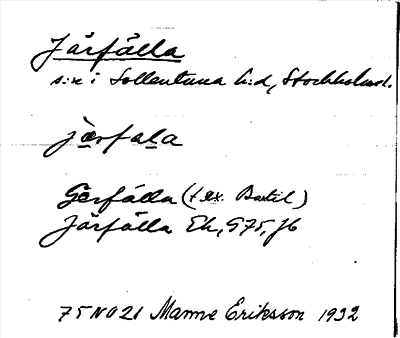 Järfälla
s:n i Sollentuna h:d, Stockholms l.
jæ̀rfala
Gerfälla (t ex. Bautil)
Järfälla Ek, G75, J6
75 NO 21 Manne Eriksson 1932